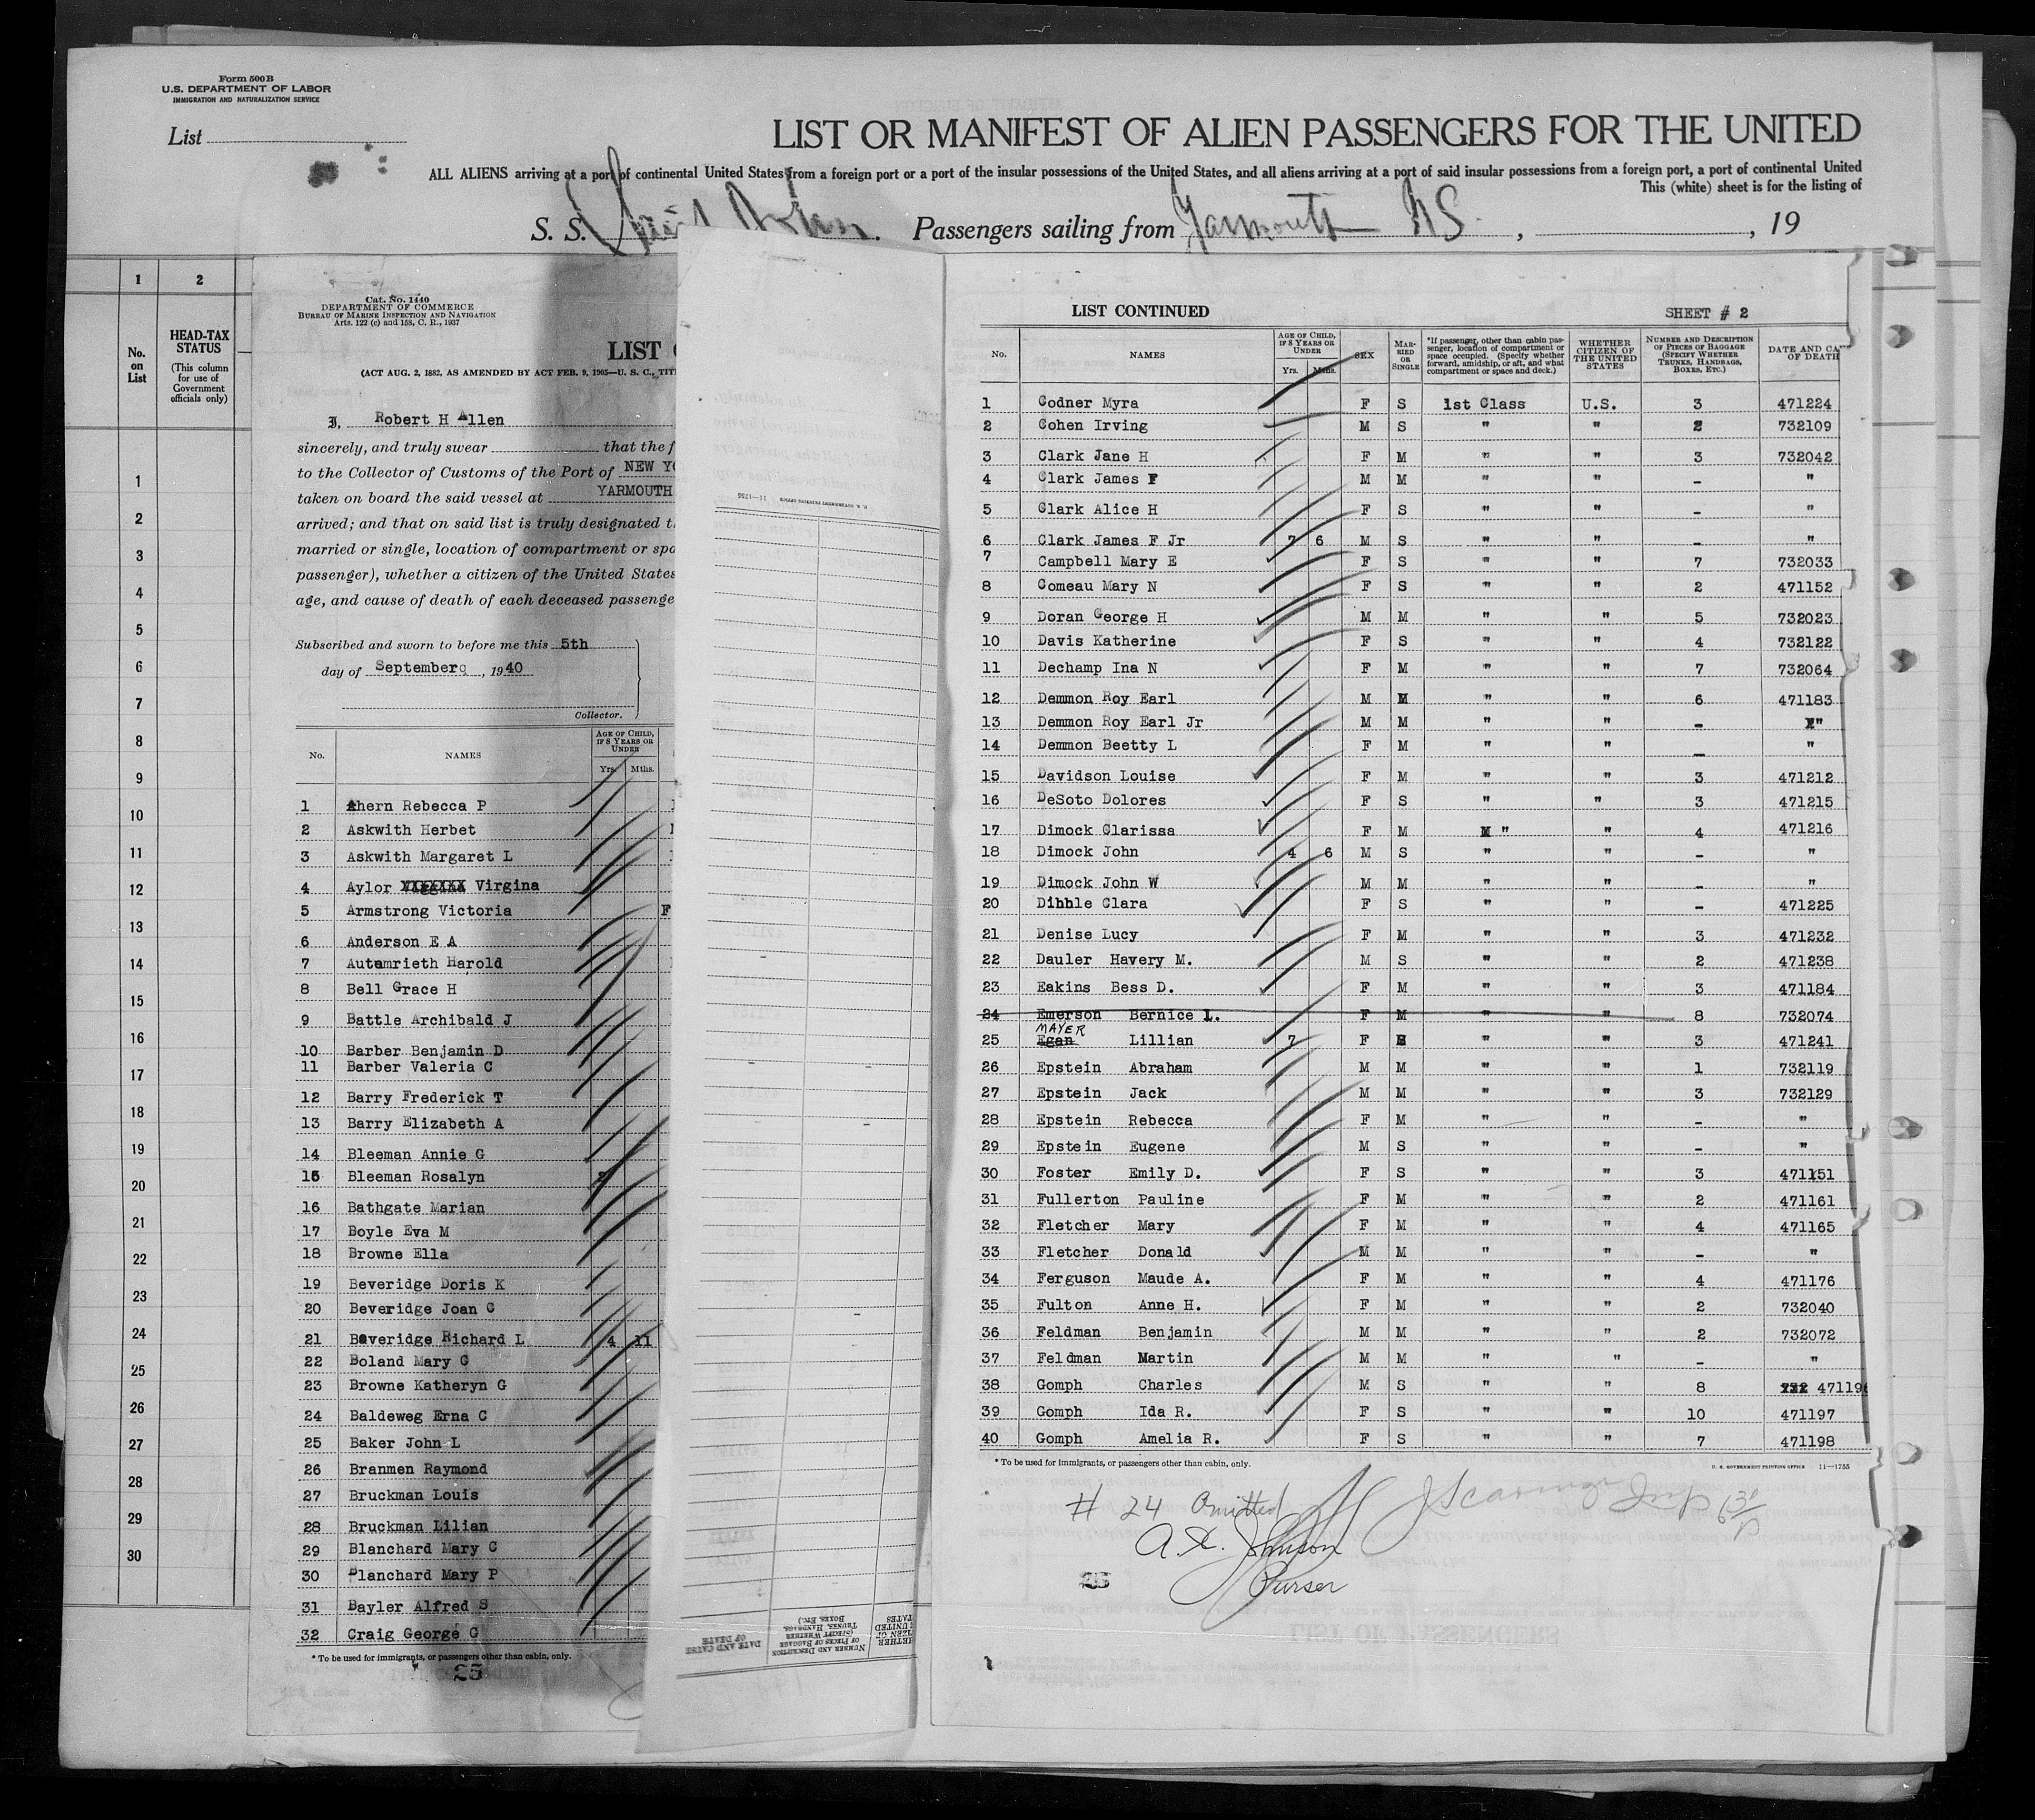 Form 500 B
U.S. DEPARTMENT OF LABOR
IMMIGRATION AND NATURALIZATION SERVICE
List
LIST OR MANIFEST OF ALIEN PASSENGERS FOR THE UNITED
ALL ALIENS arriving at a port of continental United States from a foreign port or a port of the insular possessions of the United States, and all aliens arriving at a port of said insular possessions from a foreign port, a port of continental United
This (white) sheet is for the listing of
S. S. Passengers sailing from Yarmouth NS , , 19
1 2
No. on List
HEAD-TAX STATUS
(This column for use of Government officials only)
1
2
3
4
5
6
7
8
9
10
11
12
13
14
15
16
17
18
19
20
21
22
23
24
25
26
27
28
29
30
Cat. No. 1440
DEPARTMENT OF COMMERCE
BUREAU OF MARINE INSPECTION AND NAVIGATION
Arts. 122 (c) and 158, C. R., 1937
LIST
(ACT AUG. 2, 1882, AS AMENDED BY ACT FEB. 9, 1905—U. S. C., TIT
I, Robert H Allen
sincerely, and truly swear that the f
to the Collector of Customs of the Port of NEW YO
taken on board the said vessel at YARMOUTH
arrived; and that on said list is truly designated t
married or single, location of compartment or spa
passenger), whether a citizen of the United States
age, and cause of death of each deceased passenge
Subscribed and sworn to before me this 5th
day of September , 1940
Collector.
No. NAMES AGE OF CHILD, IF 8 YEARS OR UNDER
Yrs. Mths.
1 Ahern Rebecca P
2 Askwith Herbet
3 Askwith Margaret L
4 Aylor Virgina
5 Armstrong Victoria F
6 Anderson E A
7 Autemrieth Harold
8 Bell Grace H
9 Battle Archibald J
10 Barber Benjamin D
11 Barber Valeria C
12 Barry Frederick T
13 Barry Elizabeth A
14 Bleeman Annie G
15 Bleeman Rosalyn
16 Bathgate Marian
17 Boyle Eva M
18 Browne Ella
19 Beveridge Doris K
20 Beveridge Joan C
21 Beveridge Richard L 4 11
22 Boland Mary G
23 Browne Katheryn G
24 Baldeweg Erna C
25 Baker John L
26 Branmen Raymond
27 Bruckman Louis
28 Bruckman Lilian
29 Blanchard Mary C
30 Blanchard Mary P
31 Bayler Alfred S
32 Craig George G
* To be used for immigrants, or passengers other than cabin, only.
25
U. S. GOVERNMENT PRINTING OFFICE 11—1755
DATE AND CAUSE OF DEATH
NUMBER AND DESCRIPTION OF PIECES OF BAGGAGE (SPECIFY WHETHER TRUNKS, HANDBAGS, BOXES, ETC.)
LIST CONTINUED SHEET # 2
No. NAMES AGE OF CHILD, IF 8 YEARS OR UNDER Yrs. Mths. SEX MARRIED OR SINGLE *If passenger, other than cabin passenger, location of compartment or space occupied. (Specify whether forward, amidship, or aft, and what compartment or space and deck.) WHETHER CITIZEN OF THE UNITED STATES NUMBER AND DESCRIPTION OF PIECES OF BAGGAGE (SPECIFY WHETHER TRUNKS, HANDBAGS, BOXES, ETC.) DATE AND CA OF DEATH
1 Codner Myra F S 1st Class U.S. 3 471224
2 Cohen Irving M S " " 2 732109
3 Clark Jane H F M " " 3 732042
4 Clark James F M M " " - "
5 Clark Alice H F S " " - "
6 Clark James F Jr 7 6 M S " " - "
7 Campbell Mary E F S " " 7 732033
8 Comeau Mary N F S " " 2 471152
9 Doran George H M M " " 5 732023
10 Davis Katherine F S " " 4 732122
11 Dechamp Ina N F M " " 7 732064
12 Demmon Roy Earl M M " " 6 471183
13 Demmon Roy Earl Jr M M " " - "
14 Demmon Beetty L F M " " - "
15 Davidson Louise F M " " 3 471212
16 DeSoto Dolores F S " " 3 471215
17 Dimock Clarissa F M " " 4 471216
18 Dimock John 4 6 M S " " - "
19 Dimock John W M M " " - "
20 Dibble Clara F S " " - 471225
21 Denise Lucy F M " " 3 471232
22 Dauler Havery M. M S " " 2 471238
23 Eakins Bess D. F M " " 3 471184
24 Emerson Bernice L. F M " " 8 732074
MAYER
25 Egan Lillian 7 F S " " 3 471241
26 Epstein Abraham M M " " 1 732119
27 Epstein Jack M M " " 3 732129
28 Epstein Rebecca F M " " - "
29 Epstein Eugene M S " " - "
30 Foster Emily D. F S " " 3 471151
31 Fullerton Pauline F M " " 2 471161
32 Fletcher Mary F M " " 4 471165
33 Fletcher Donald M M " " - "
34 Ferguson Maude A. F M " " 4 471176
35 Fulton Anne H. F M " " 2 732040
36 Feldman Benjamin M M " " 2 732072
37 Feldman Martin M M " " - "
38 Gomph Charles M S " " 8 732 471196
39 Gomph Ida R. F S " " 10 471197
40 Gomph Amelia R. F S " " 7 471198
* To be used for immigrants, or passengers other than cabin, only.
U. S. GOVERNMENT PRINTING OFFICE 11—1755
# 24 Omitted
A. X. Johnson
Purser